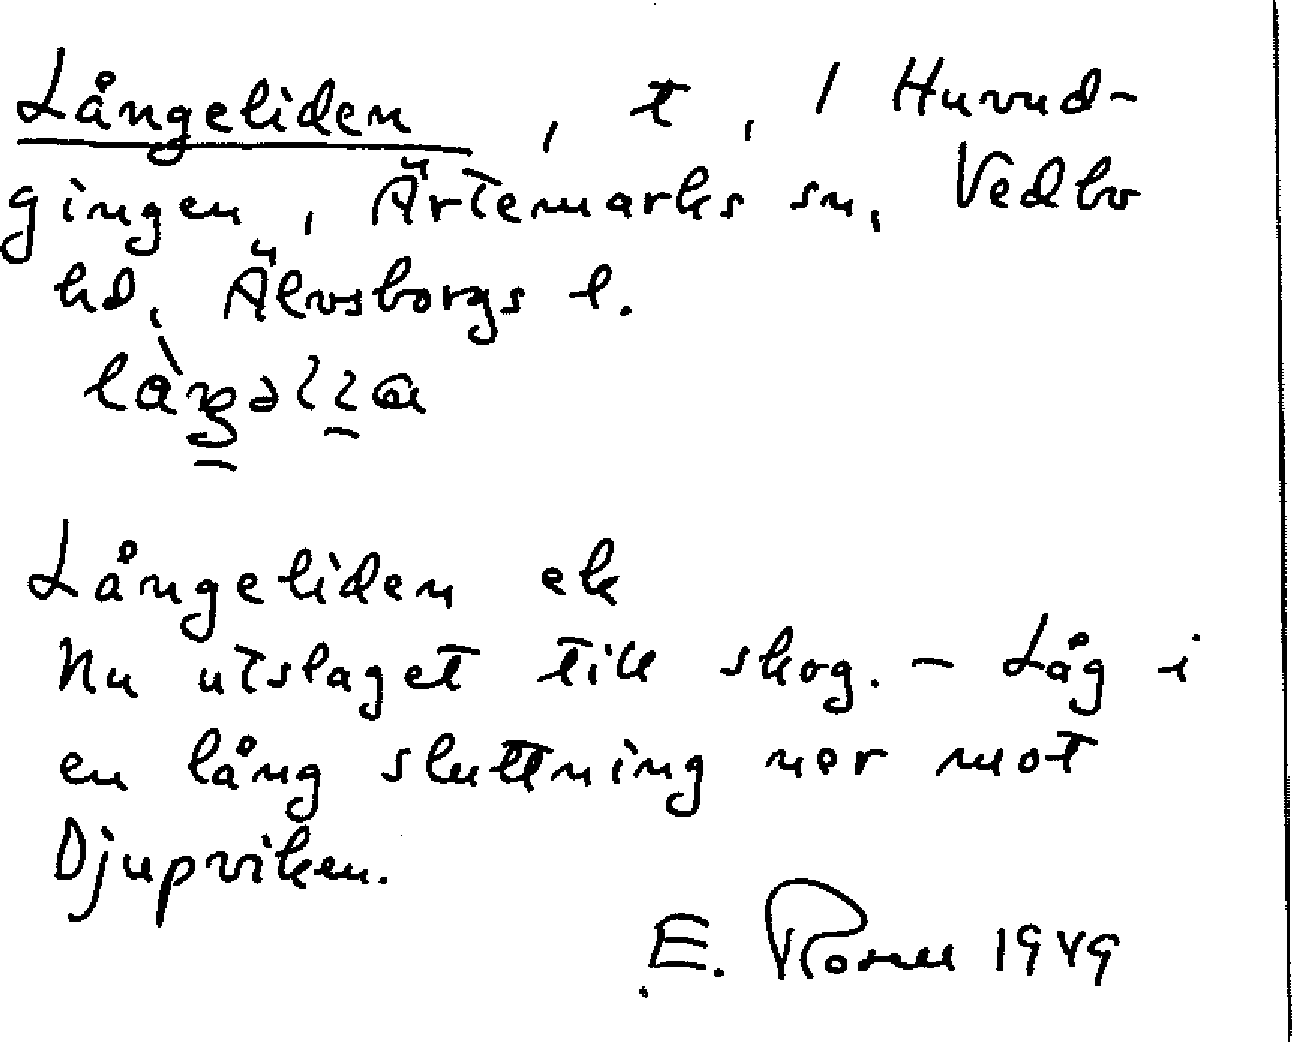 Långeliden, t, 1 Huvud-
gingen, Ärtemarks sn, Vedbo
hd, Älvsborgs l.
Långeliden ek
Nu utslaget till skog. – Låg i
en lång sluttning ner mot
Djupviken.
E. Rosell 1949